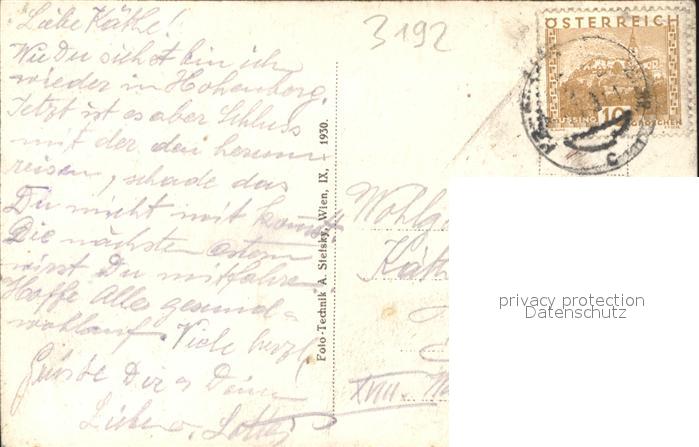 Liebe Käthe!
Wie Du siehst bin ich
wieder in Hohenberg.
Jetzt ist es aber Schluss
mit der den herum
reisen, schade das
Du nicht mit konnst
Die nächsten Ostern
wirst Du mitfahren
Hoffe Alles gesund
wohlauf. Viele herzl
Grüsse Dir
Lotte
3192
ÖSTERREICH
GÜSSING 10 GROSCHEN
Foto-Technik A. Stefsky, Wien, IX, - 1930.
Käth
XVIII.
privacy protection
Datenschutz